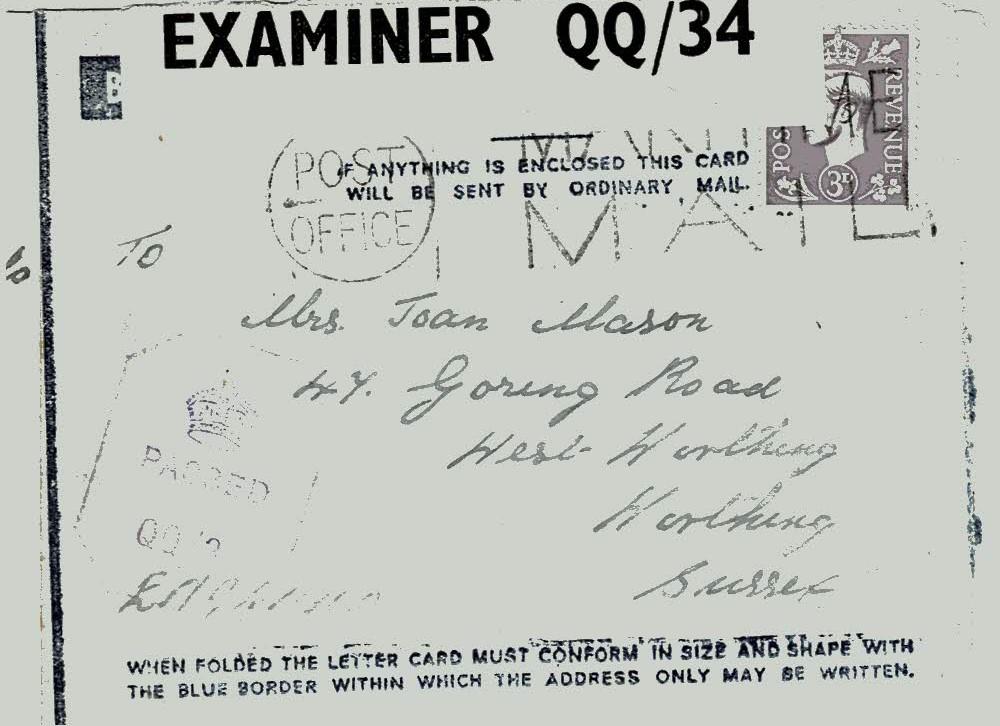 EXAMINER QQ/34
POST REVENUE
3D
POST
OFFICE
MAIL
IF ANYTHING IS ENCLOSED THIS CARD
WILL BE SENT BY ORDINARY MAIL.
To
Mrs. Joan Mason
47. Goring Road
West Worthing
Worthing
Sussex
PASSED
QQ
WHEN FOLDED THE LETTER CARD MUST CONFORM IN SIZE AND SHAPE WITH
THE BLUE BORDER WITHIN WHICH THE ADDRESS ONLY MAY BE WRITTEN.